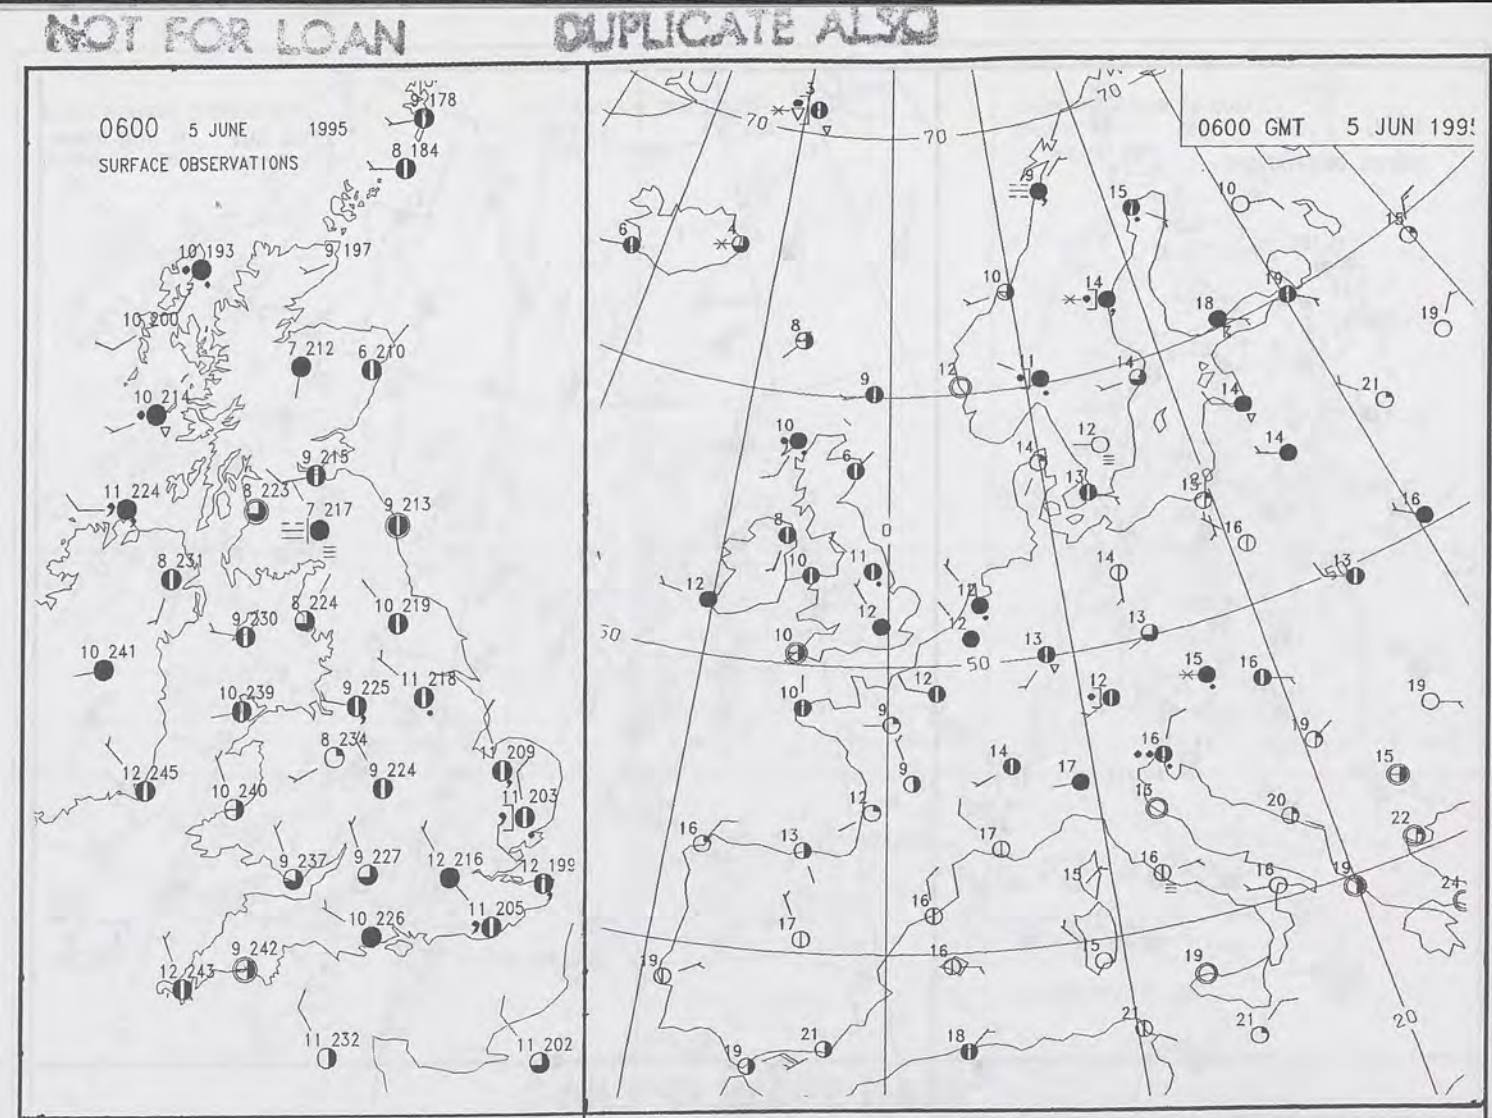 NOT FOR LOAN DUPLICATE ALSO
0600 5 JUNE 1995
SURFACE OBSERVATIONS
9 178
8 184
10 193
9 197
10 200
7 212
6 210
10 214
9 215
11 224
8 223
7 217
9 213
8 231
9 230
8 224
10 219
10 241
10 239
9 225
11 218
8 234
11 209
12 245
10 240
9 224
11 203
9 237
9 227
12 216
12 199
11 205
10 226
9 242
12 243
11 232
11 202
0600 GMT 5 JUN 199
3
70
70
70
9
15
10
15
6
4
10
14
19
18
19
8
9
12
11
14
21
14
10
6
14
12
13
14
13
16
8
0
10
11
16
14
50
13
12
12
12
12
10
50
13
13
15
16
19
10
12
9
12
16
19
14
17
15
9
12
20
22
16
13
17
16
16
19
24
15
16
17
16
15
19
19
21
21
18
19
21
20